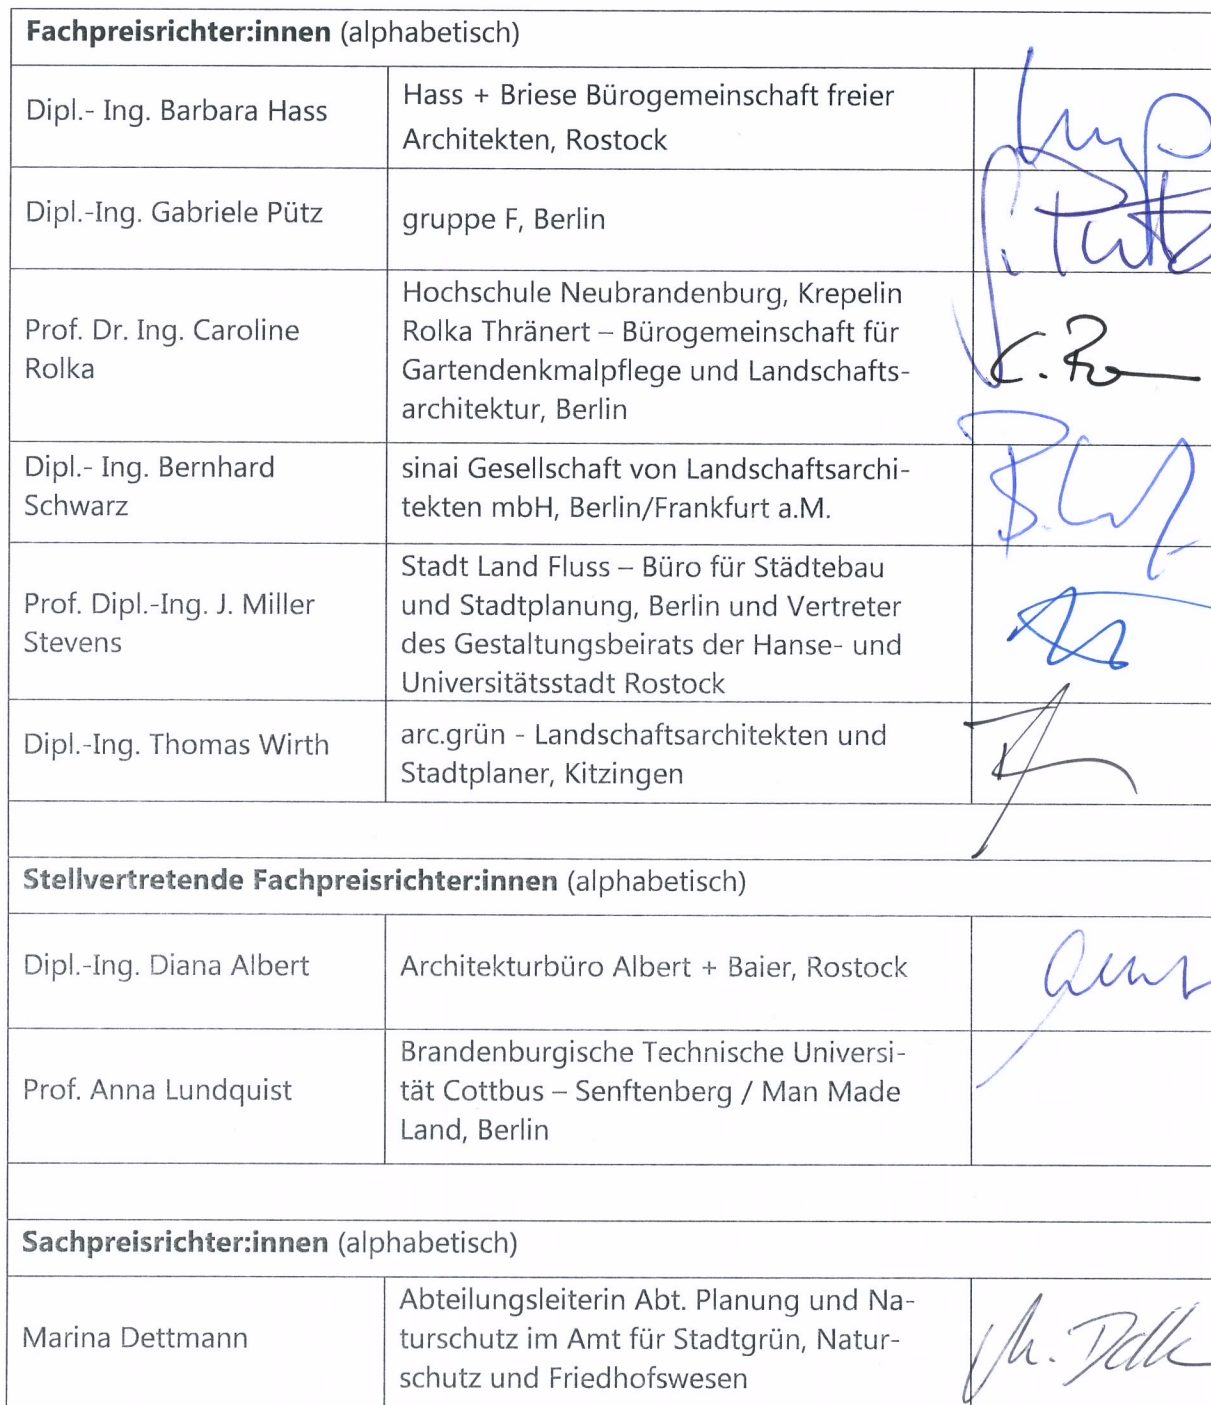 Fachpreisrichter:innen (alphabetisch)
Dipl.- Ing. Barbara Hass
Hass + Briese Bürogemeinschaft freier
Architekten, Rostock
Dipl.-Ing. Gabriele Pütz
gruppe F, Berlin
G. Pütz
Prof. Dr. Ing. Caroline
Rolka
Hochschule Neubrandenburg, Krepelin
Rolka Thränert – Bürogemeinschaft für
Gartendenkmalpflege und Landschafts-
architektur, Berlin
Dipl.- Ing. Bernhard
Schwarz
sinai Gesellschaft von Landschaftsarchi-
tekten mbH, Berlin/Frankfurt a.M.
Prof. Dipl.-Ing. J. Miller
Stevens
Stadt Land Fluss – Büro für Städtebau
und Stadtplanung, Berlin und Vertreter
des Gestaltungsbeirats der Hanse- und
Universitätsstadt Rostock
Dipl.-Ing. Thomas Wirth
arc.grün - Landschaftsarchitekten und
Stadtplaner, Kitzingen
Stellvertretende Fachpreisrichter:innen (alphabetisch)
Dipl.-Ing. Diana Albert
Architekturbüro Albert + Baier, Rostock
Prof. Anna Lundquist
Brandenburgische Technische Universi-
tät Cottbus – Senftenberg / Man Made
Land, Berlin
Sachpreisrichter:innen (alphabetisch)
Marina Dettmann
Abteilungsleiterin Abt. Planung und Na-
turschutz im Amt für Stadtgrün, Natur-
schutz und Friedhofswesen